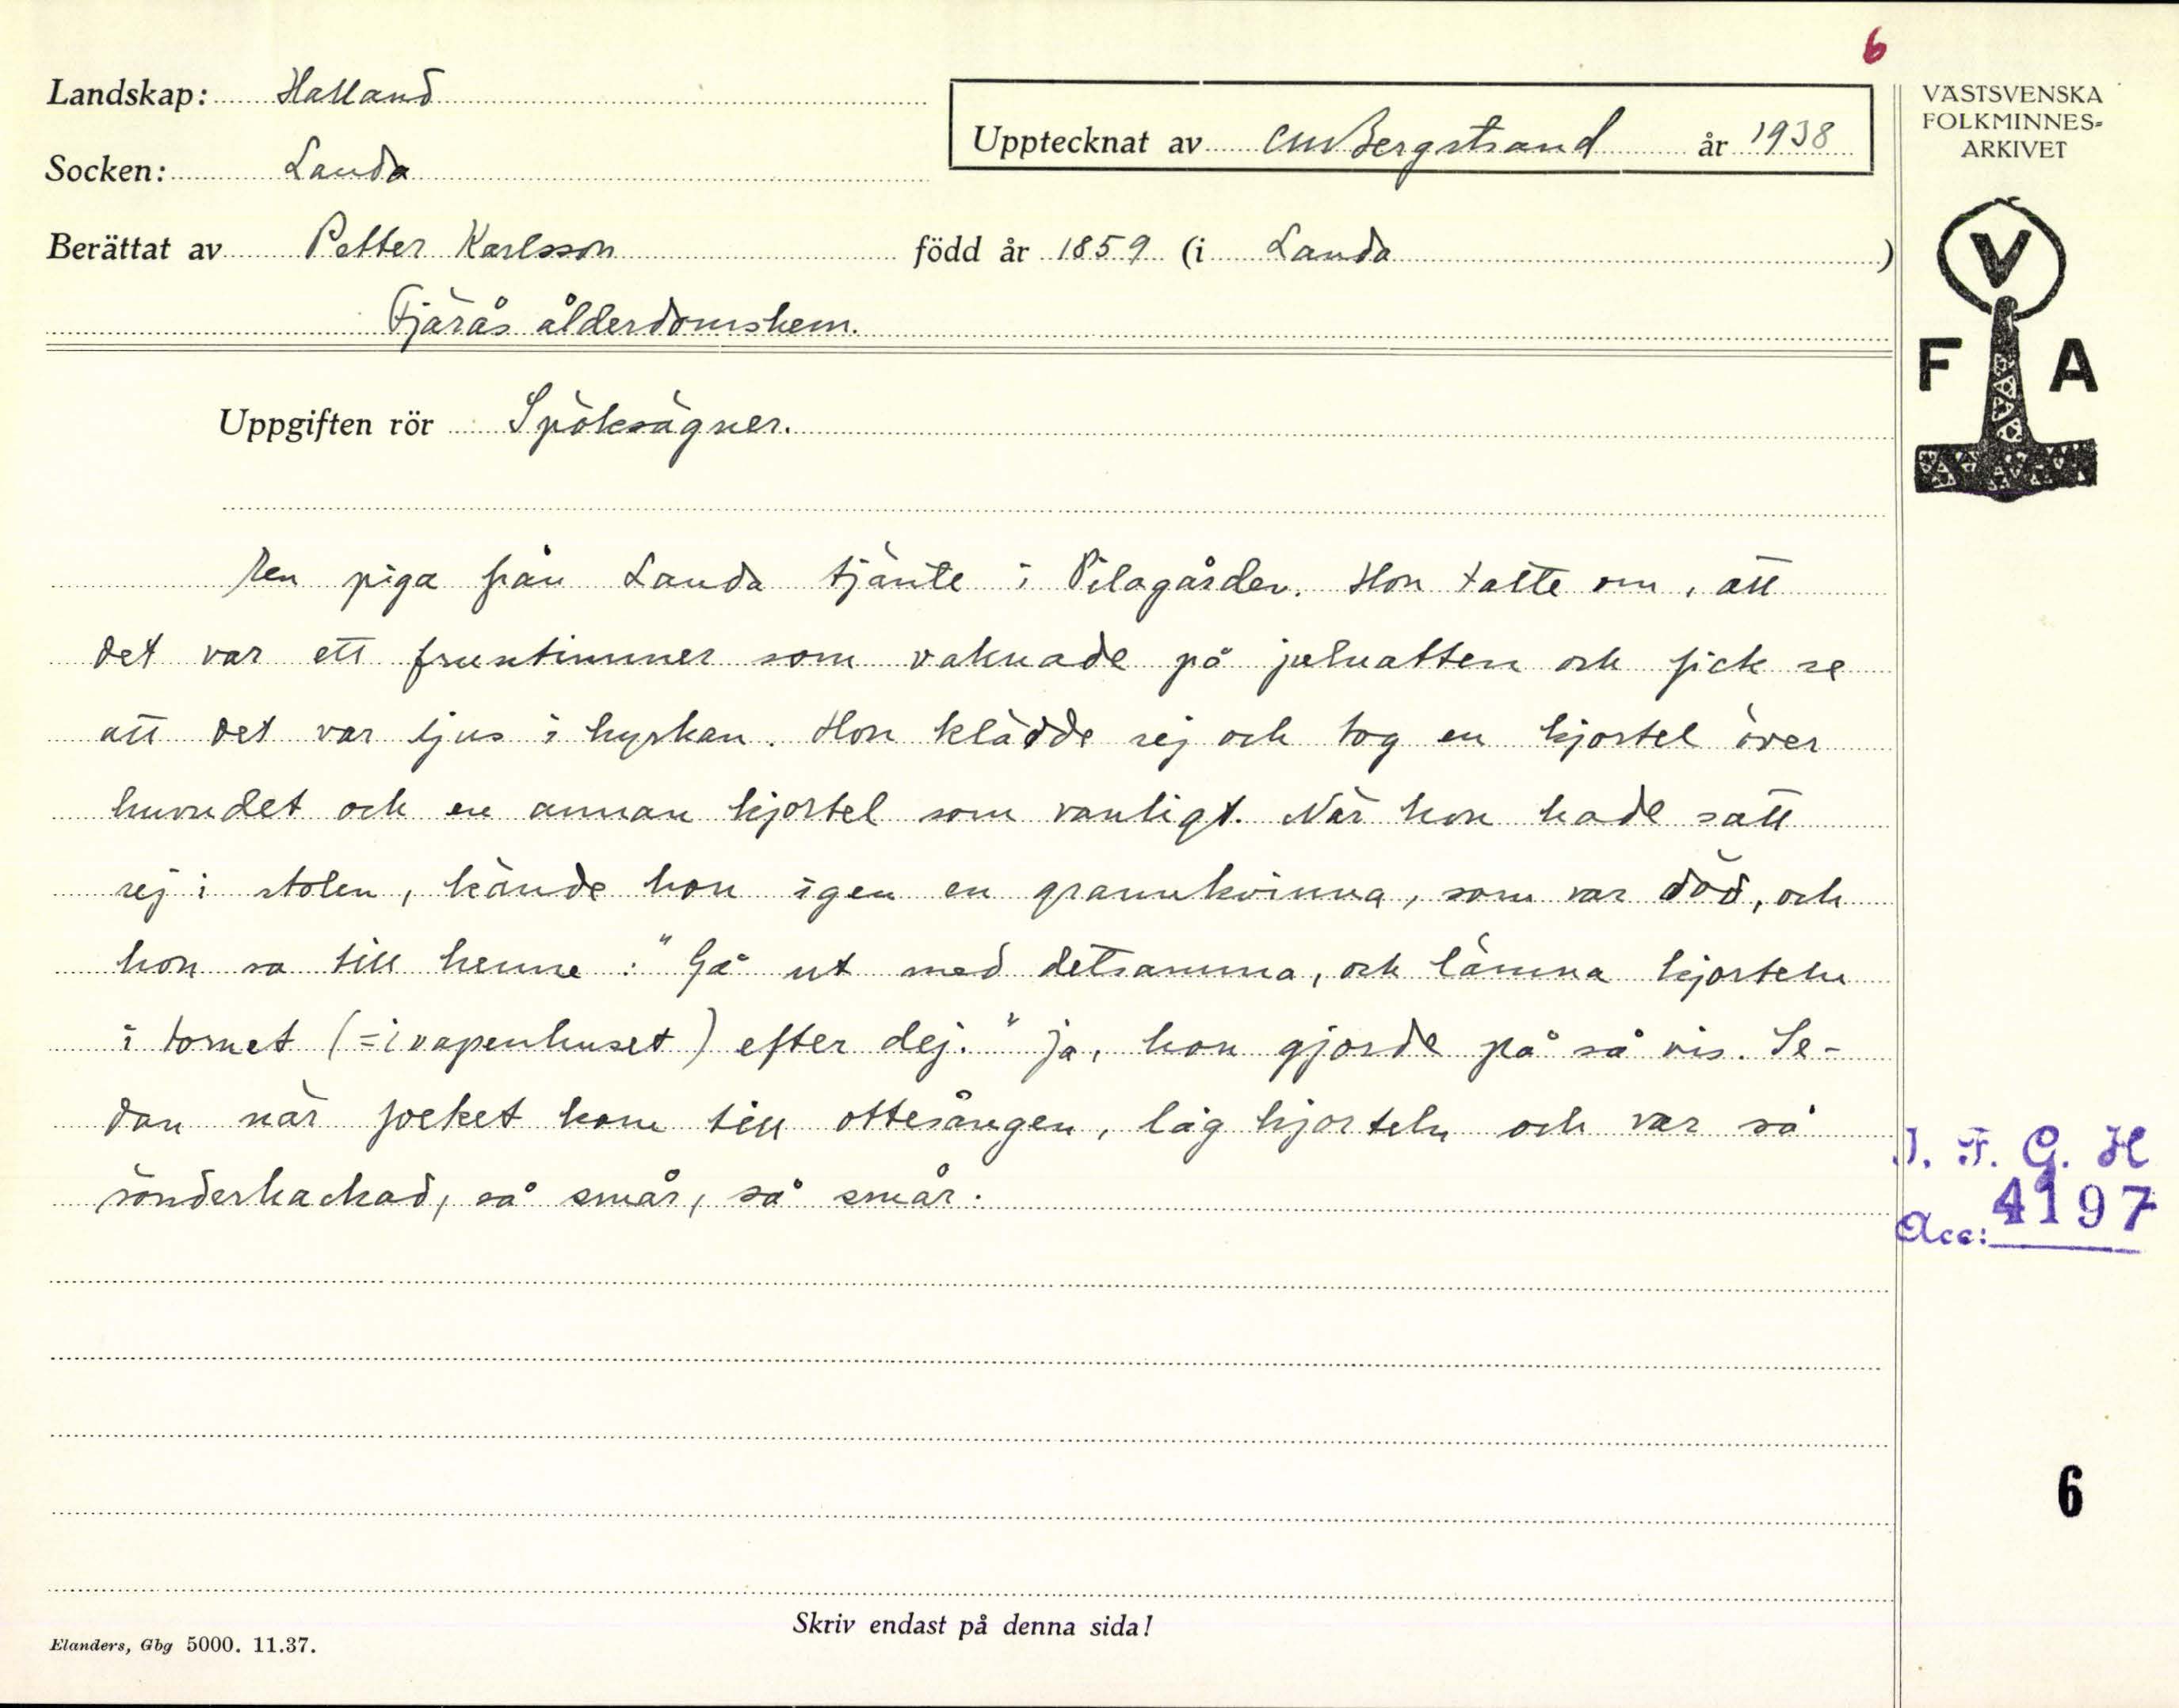 6
Landskap: Halland
Upptecknat av CM Bergstrand år 1938
VÄSTSVENSKA
FOLKMINNES-
ARKIVET
Socken: Landa
Berättat av Petter Karlsson född år 1859 (i Landa )
Fjärås ålderdomshem.
V
F A
Uppgiften rör Spöksägner.
En piga från Landa tjänte i Pilagården. Hon talte om, att
det var ett fruntimmer som vaknade på julnatten och fick se
att det var ljus i kyrkan. Hon klädde sej och tog en kjortel över
huvudet och en annan kjortel som vanligt. När hon hade satt
sej i stolen, kände hon igen en grannkvinna, som var död, och
hon sa till henne: "Gå ut med detsamma, och lämna kjorteln
i tornet (=i vapenhuset) efter dej." Ja, hon gjorde på så vis. Se-
dan när folket kom till ottesången, låg kjorteln och var så
sönderhackad, så smår, så smår.
I. F. G. H
Acc: 4197
6
Skriv endast på denna sida!
Elanders, Gbg 5000. 11.37.